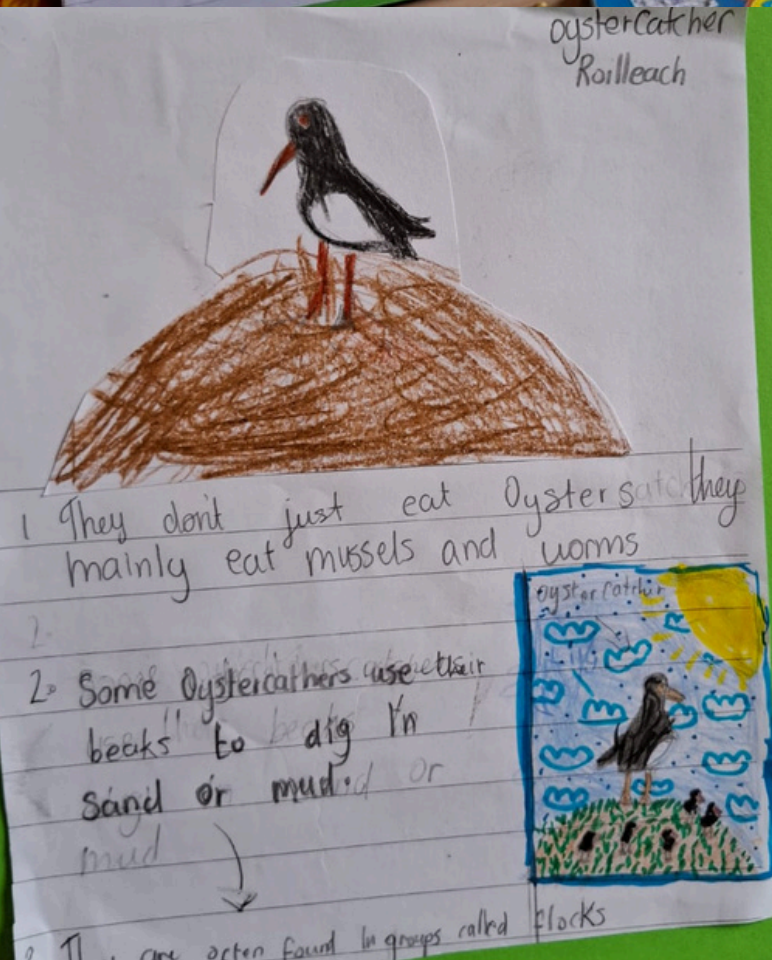 oystercatcher
Roilleach
1 They don't just eat Oysters they
mainly eat mussels and worms
2.
2. Some Oystercathers use their
beaks to dig In
sand or mud.
mud
oystercatcher
are often found In groups called flocks